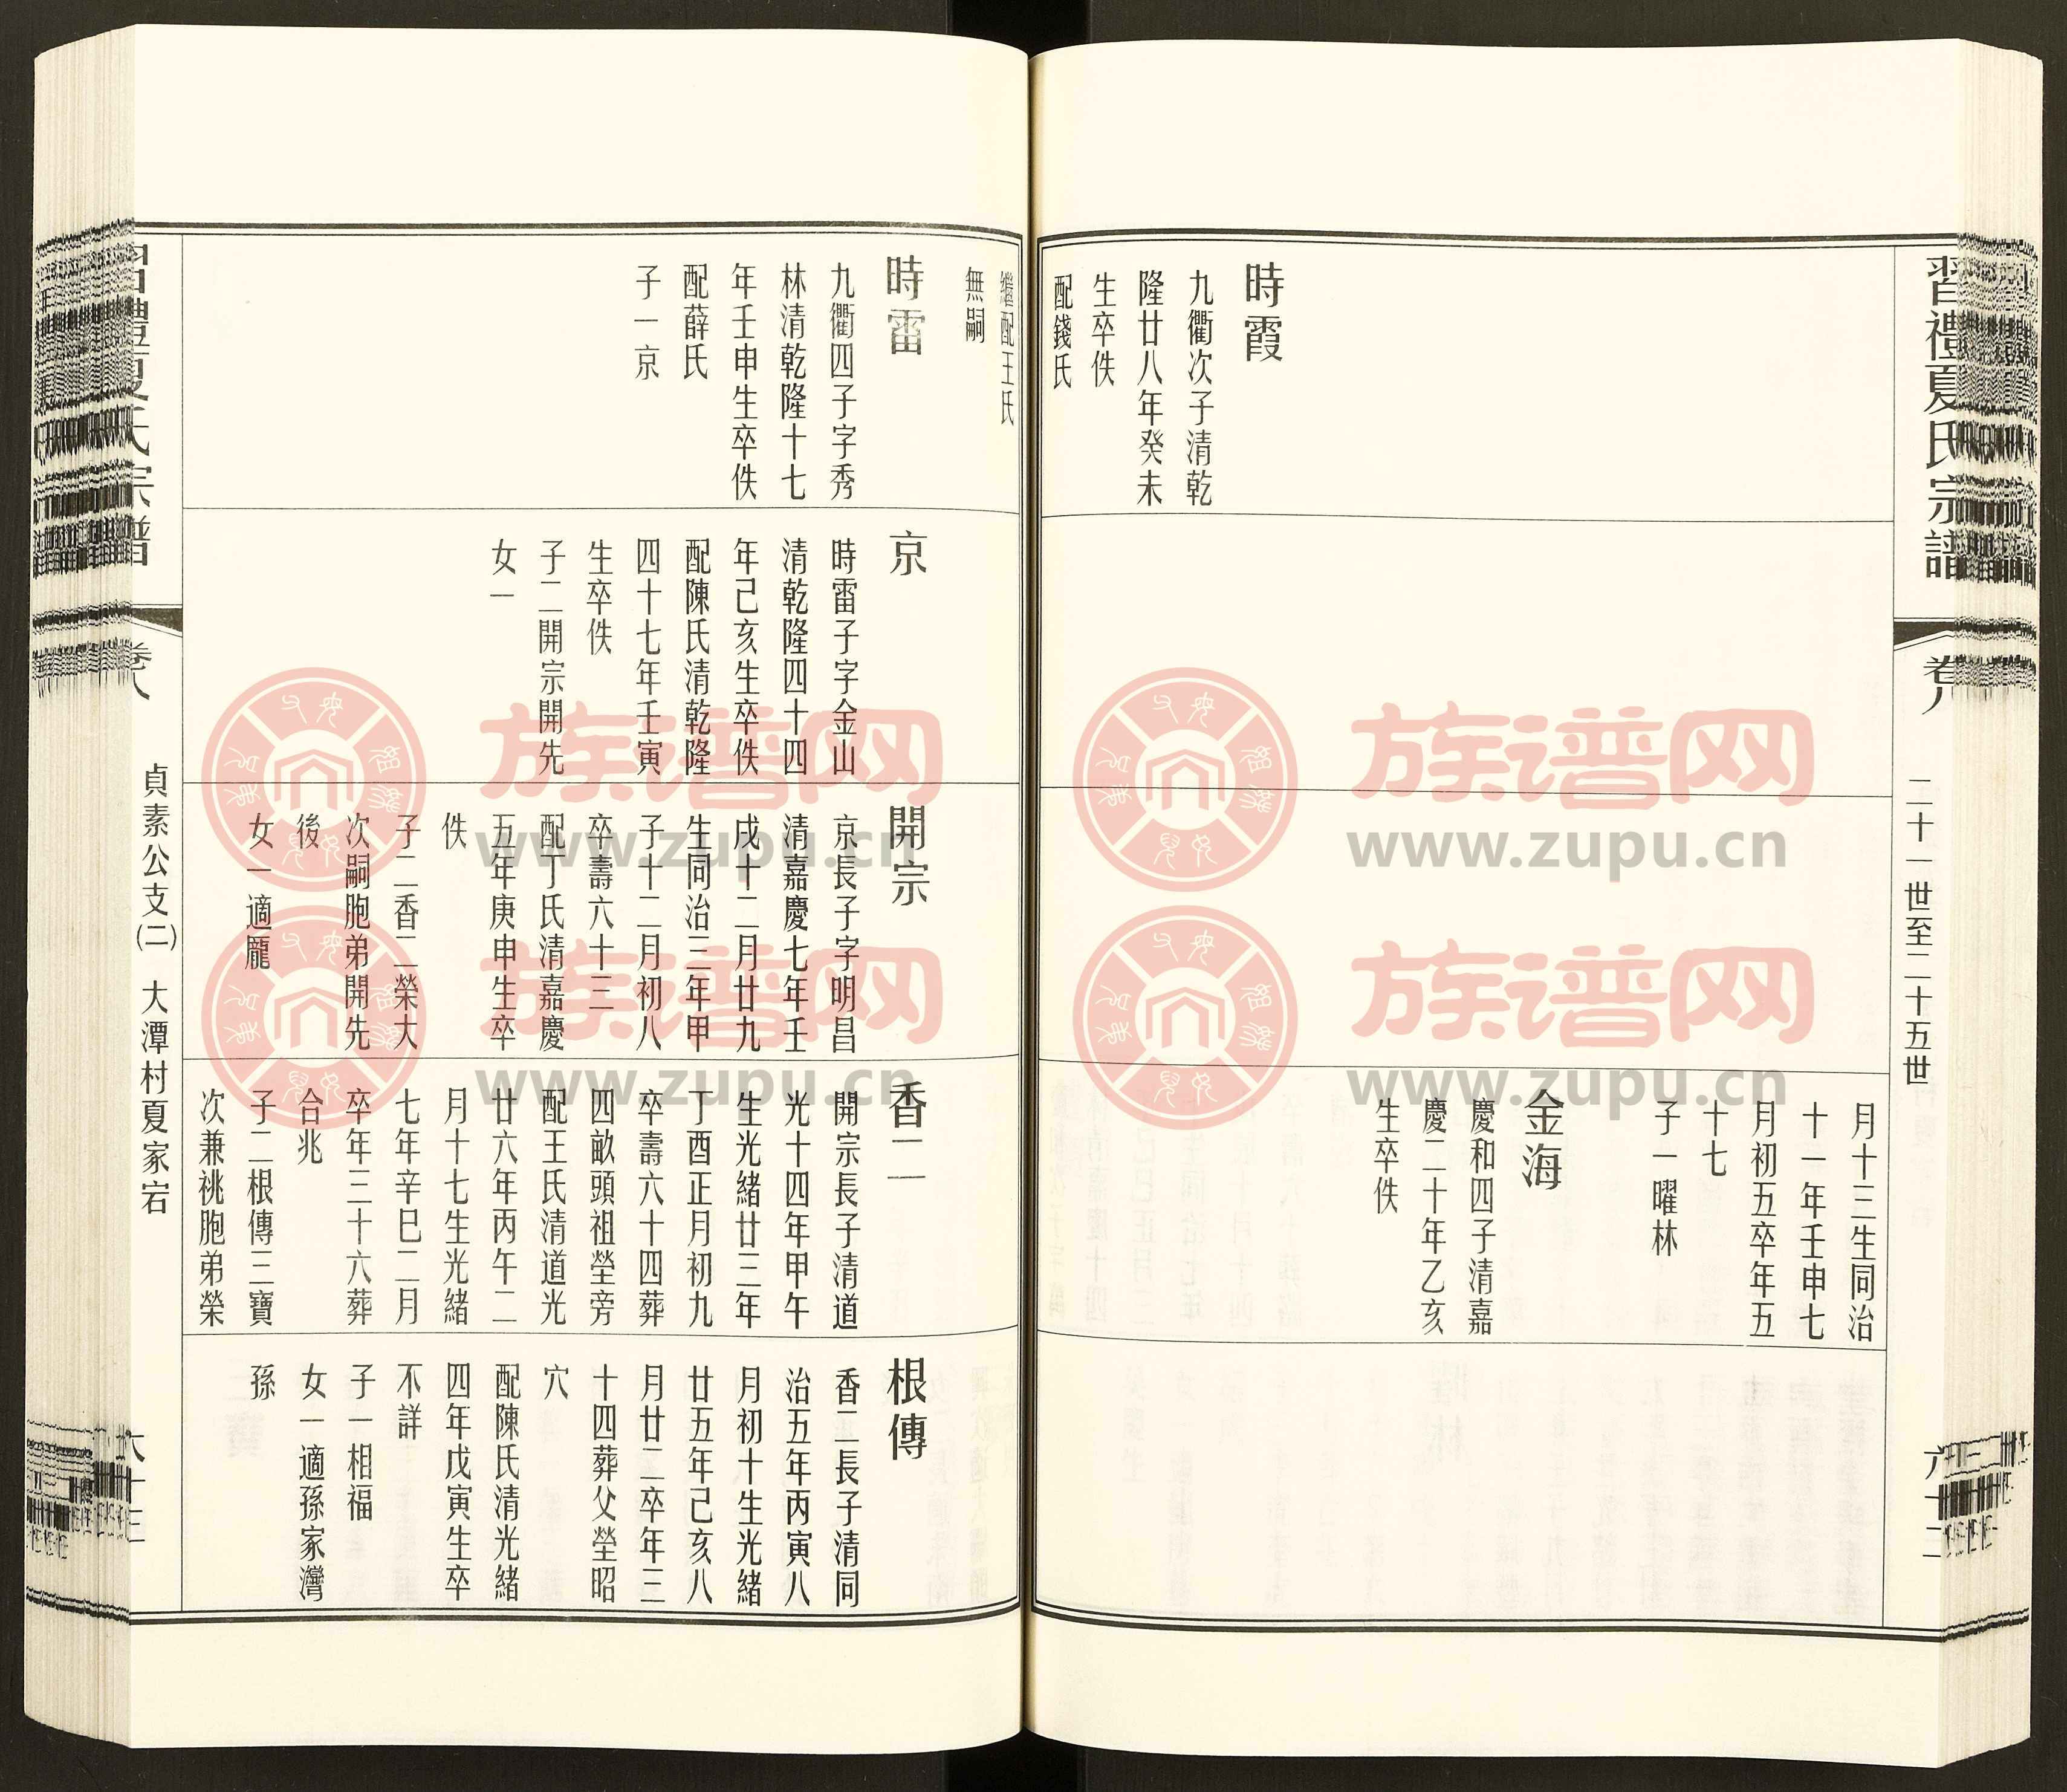 習禮夏氏宗譜
卷八
二十一世至二十五世
六十二
時霞
九衢次子清乾
隆廿八年癸未
生卒佚
配錢氏
月十三生同治
十一年壬申七
月初五卒年五
十七
子一曜林
金海
慶和四子清嘉
慶二十年乙亥
生卒佚
繼配王氏
無嗣
時雷
九衢四子字秀
林清乾隆十七
年壬申生卒佚
配薛氏
子一京
京
時雷子字金山
清乾隆四十四
年己亥生卒佚
配陳氏清乾隆
四十七年壬寅
生卒佚
子二開宗開先
女一
開宗
京長子字明昌
清嘉慶七年壬
戌十二月廿九
生同治三年甲
子十二月初八
卒壽六十三
配丁氏清嘉慶
五年庚申生卒
佚
子二香二榮大
次嗣胞弟開先
後
女一適龐
香二
開宗長子清道
光十四年甲午
生光緒廿三年
丁酉正月初九
卒壽六十四葬
四畝頭祖塋旁
配王氏清道光
廿六年丙午二
月十七生光緒
七年辛巳二月
卒年三十六葬
合兆
子二根傳三寶
次兼祧胞弟榮
根傳
香二長子清同
治五年丙寅八
月初十生光緒
廿五年己亥八
月廿二卒年三
十四葬父塋昭
穴
配陳氏清光緒
四年戊寅生卒
不詳
子一相福
女一適孫家灣
孫
習禮夏氏宗譜
卷八
貞素公支(二) 大潭村夏家宕
六十三
族谱网
www.zupu.cn
族谱网
www.zupu.cn
族谱网
www.zupu.cn
族谱网
www.zupu.cn